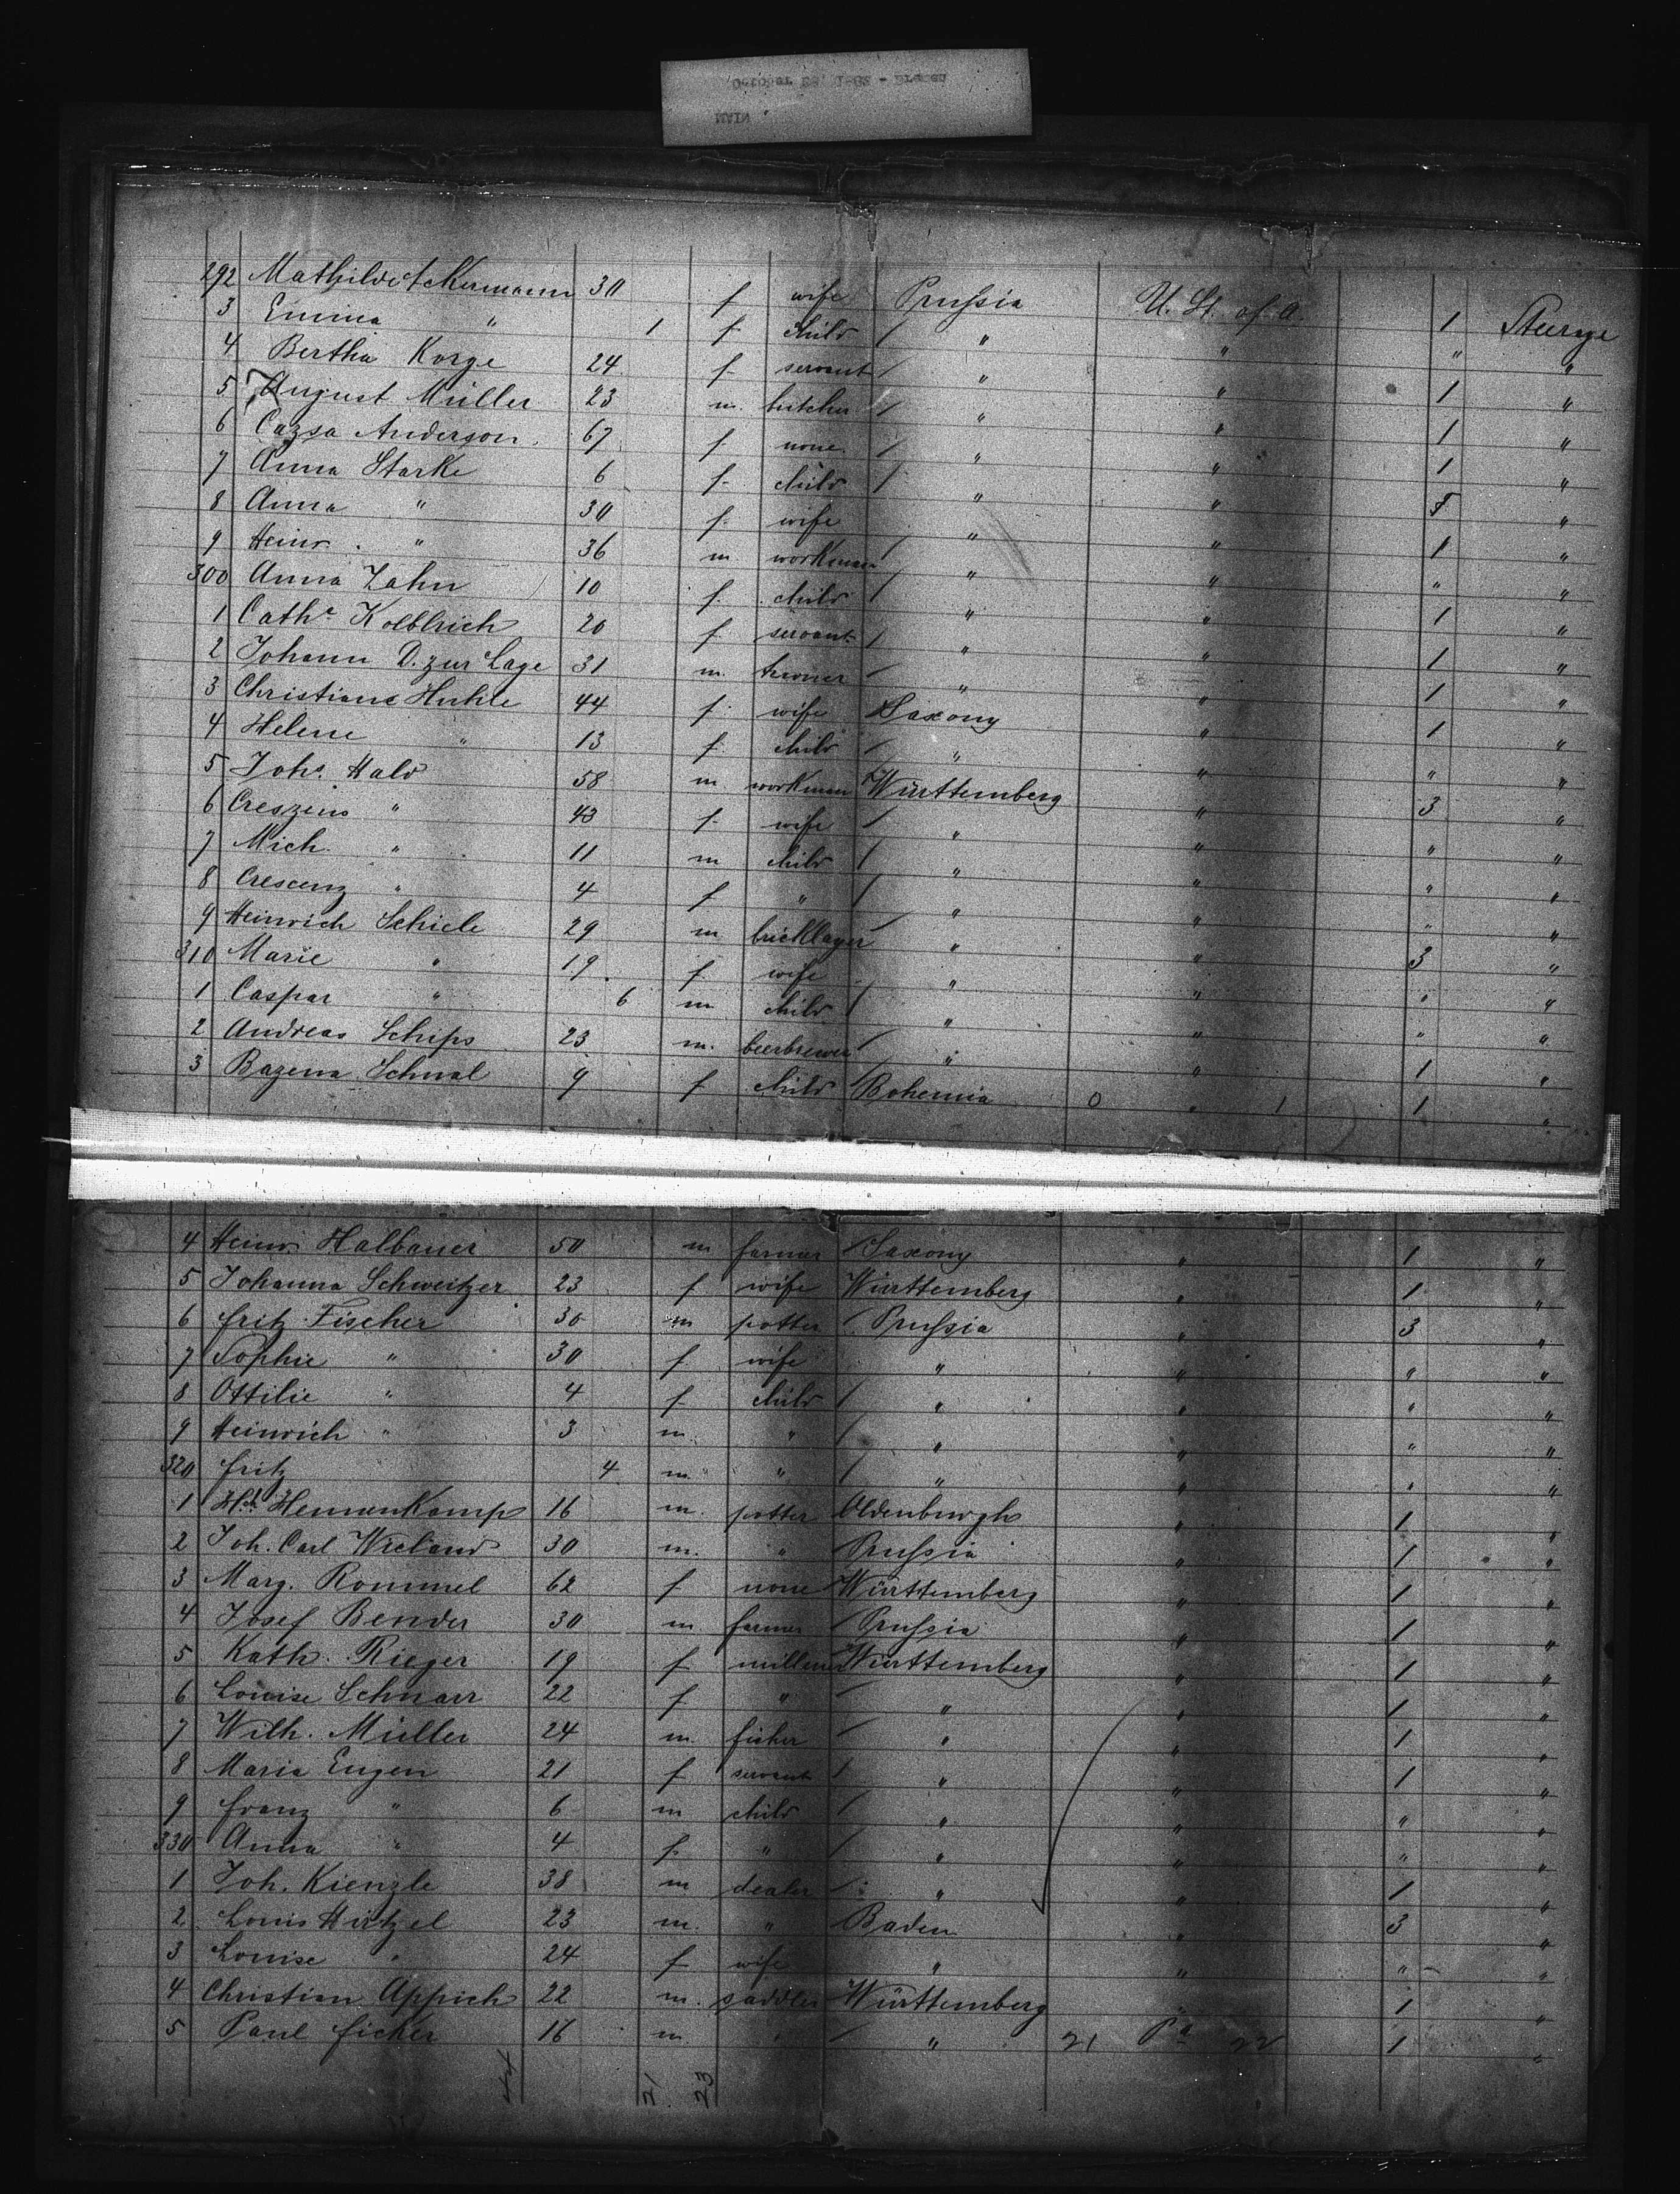 MAIN
October 28, 1882 - Bremen
292 Mathilde Ackermann 30 f wife Prussia U. St. of A. 1 Steerage
3 Emma " 1 f child " " " "
4 Bertha Korge 24 f servant " " 1 "
5 August Müller 23 m. butcher " " 1 "
6 Cazsa Anderson 67 f none " " 1 "
7 Anna Starke 6 f child " " "
8 Anna " 30 f wife " " 1 "
9 Heinr. " 36 m workman " " " "
300 Anna Zahn 10 f child " " 1 "
1 Cathe Kolblrich 20 f servant " " 1 "
2 Johann D. zur Lage 31 m. " " 1 "
3 Christiane Huhle 44 f wife Saxony " 1 "
4 Helene " 13 f child " " " "
5 Johs. Hald 58 m workman Württemberg " 3 "
6 Creszens " 43 f wife " " " "
7 Mich. " 11 m child " " " "
8 Crescenz " 4 f " " " " "
9 Heinrich Schiele 29 m bricklayer " " 3 "
310 Marie " 19 f wife " " " "
1 Caspar " 6 m child " " " "
2 Andreas Schips 23 m. beerbrewer " " 1 "
3 Bazena Schnal 9 f child Bohemia 0 " 1 1 "
4 Heinr. Halbauer 50 m farmer Saxony " 1 "
5 Johanna Schweitzer 23 f wife Württemberg " 1 "
6 Fritz Fischer 30 m potter Prussia " 3 "
7 Sophie " 30 f wife " " " "
8 Ottilie " 4 f child " " " "
9 Heinrich " 3 m. " " " " "
320 Fritz 4 m. " " " " "
1 Hch. Hemmenkamp 16 m. potter Oldenburgh " 1 "
2 Joh. Carl Wieland 30 m. " Prussia " 1 "
3 Marg. Rommel 62 f none Württemberg " 1 "
4 Josef Bender 30 m farmer Prussia " 1 "
5 Kath. Rieger 19 f milliner Württemberg " 1 "
6 Louise Schnarr 22 f " " " 1 "
7 Wilh. Müller 24 m. fisher " " 1 "
8 Maria Eugen 21 f servant " " 1 "
9 Franz " 6 m child " " " "
330 Anna " 4 f. " " " " "
1 Joh. Kienzle 38 m dealer " " 1 "
2 Louis Hirtzel 23 m. " Baden " 3 "
3 Louise " 24 f wife " " " "
4 Christian Appich 22 m. saddler Württemberg " 1 "
5 Paul Ficker 16 m. " " 21 22 1 "
44 21 23